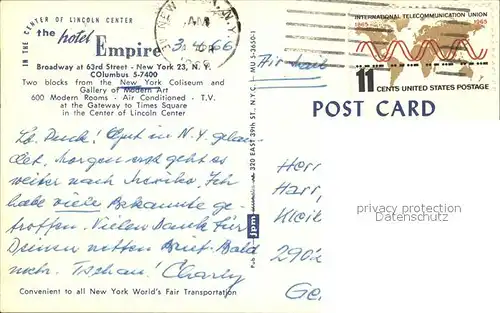 IN THE CENTER OF LINCOLN CENTER
the hotel
Empire
Broadway at 63rd Street - New York 23, N. Y.
COlumbus 5-7400
Two blocks from the New York Coliseum and
Gallery of Modern Art
600 Modern Rooms · Air Conditioned · T.V.
at the Gateway to Times Square
in the Center of Lincoln Center
Gut in N.Y. gelan
det, morgen erst geht es
weiter nach Mexiko. Ich
habe viele Bekannte ge-
troffen. Vielen Dank für
Deinen netten Brief. Bald
mehr. Tschau! Charly
Convenient to all New York World's Fair Transportation
320 EAST 39th ST., N.Y.C.
jpm
NEW N.Y.
AM
66
Air Mail
INTERNATIONAL TELECOMMUNICATION UNION
1865 1965
11 CENTS UNITED STATES POSTAGE
POST CARD
Herr
Harr
2902
Ge
privacy protection
Datenschutz